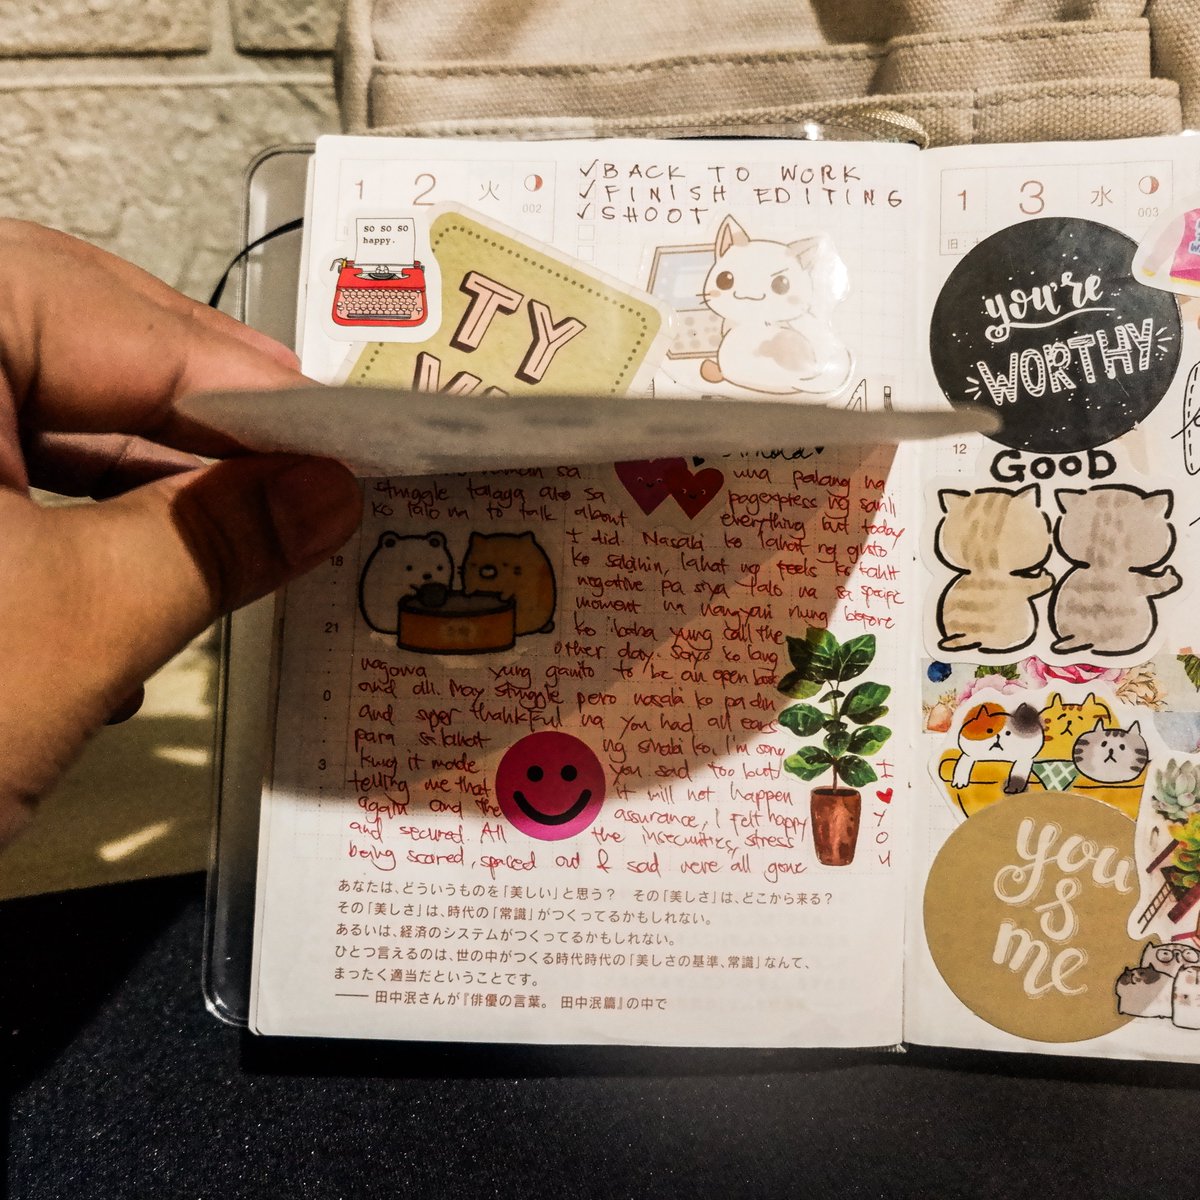 1 2 火
002
✓BACK TO WORK
✓FINISH EDITING
✓SHOOT
so so so
happy.
TY
struggle talaga ako sa
ko lalo na to talk about
una palang na
pagexpress ng sarili
everything but today
I did. Nasabi ko lahat ng gusto
ko sabihin, lahat ng feels ko kahit
negative pa siya lalo na sa specific
moment na nangyari nung before
ko ibaba yung call the
other day. Sayo ko lang
nagawa yung ganito to be an open book
and all. May struggle pero nasabi ko pa din
and super thankful na you had all ears
para sa lahat ng sinabi ko. I'm sorry
kung it made you sad too but
telling me that it will not happen
again and the assurance, I felt happy
and secured. All the insecurities, stress
being scared, spaced out & sad were all gone
I
YOU
18
21
0
3
あなたは、どういうものを「美しい」と思う？ その「美しさ」は、どこから来る？
その「美しさ」は、時代の「常識」がつくってるかもしれない。
あるいは、経済のシステムがつくってるかもしれない。
ひとつ言えるのは、世の中がつくる時代時代の「美しさの基準、常識」なんて、
まったく適当だということです。
── 田中泯さんが『俳優の言葉。 田中泯篇』の中で
1 3 水
003
you're
WORTHY
12
GOOD
you
&
me